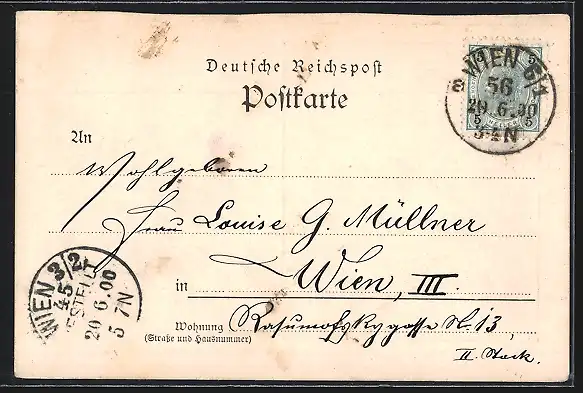 Deutsche Reichspost
Postkarte
WIEN 6/1
56
20 6.00
5
5
N
An
Wohlgeboren
Frau Louise G. Müllner
in Wien, III.
Wohnung Rasumofskygasse N. 13,
(Straße und Hausnummer)
II. Stock.
WIEN 3/2
45
BESTELLT
20 6.00
5 7N